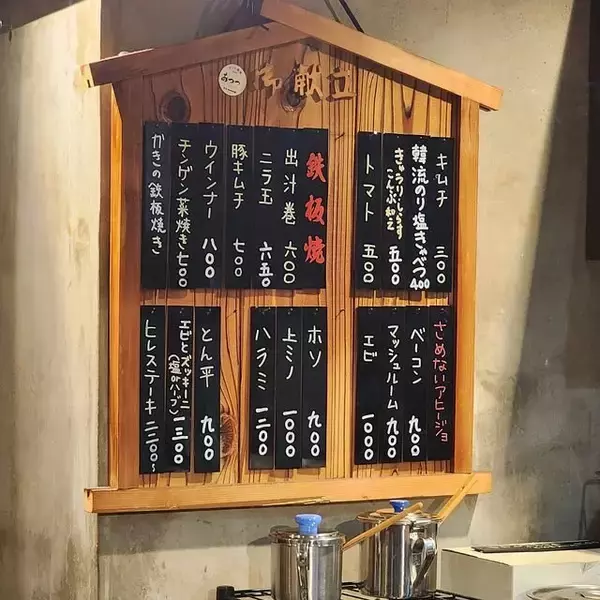 御献立
キムチ 三〇〇
韓流のり塩きゃべつ 400
きゅうりとしらす
こんぶ和え 五〇〇
トマト 五〇〇
鉄板焼
出汁巻 六〇〇
ニラ玉 六五〇
豚キムチ 七〇〇
ウインナー 八〇〇
チンゲン菜焼き 七〇〇
かきの鉄板焼き
さめないアヒージョ
ベーコン 九〇〇
マッシュルーム 九〇〇
エビ 一〇〇〇
ホソ 九〇〇
上ミノ 一〇〇〇
ハラミ 一二〇〇
とん平 九〇〇
エビとズッキーニ
(塩orハーブ) 一三〇〇
ヒレステーキ 二二〇〇~